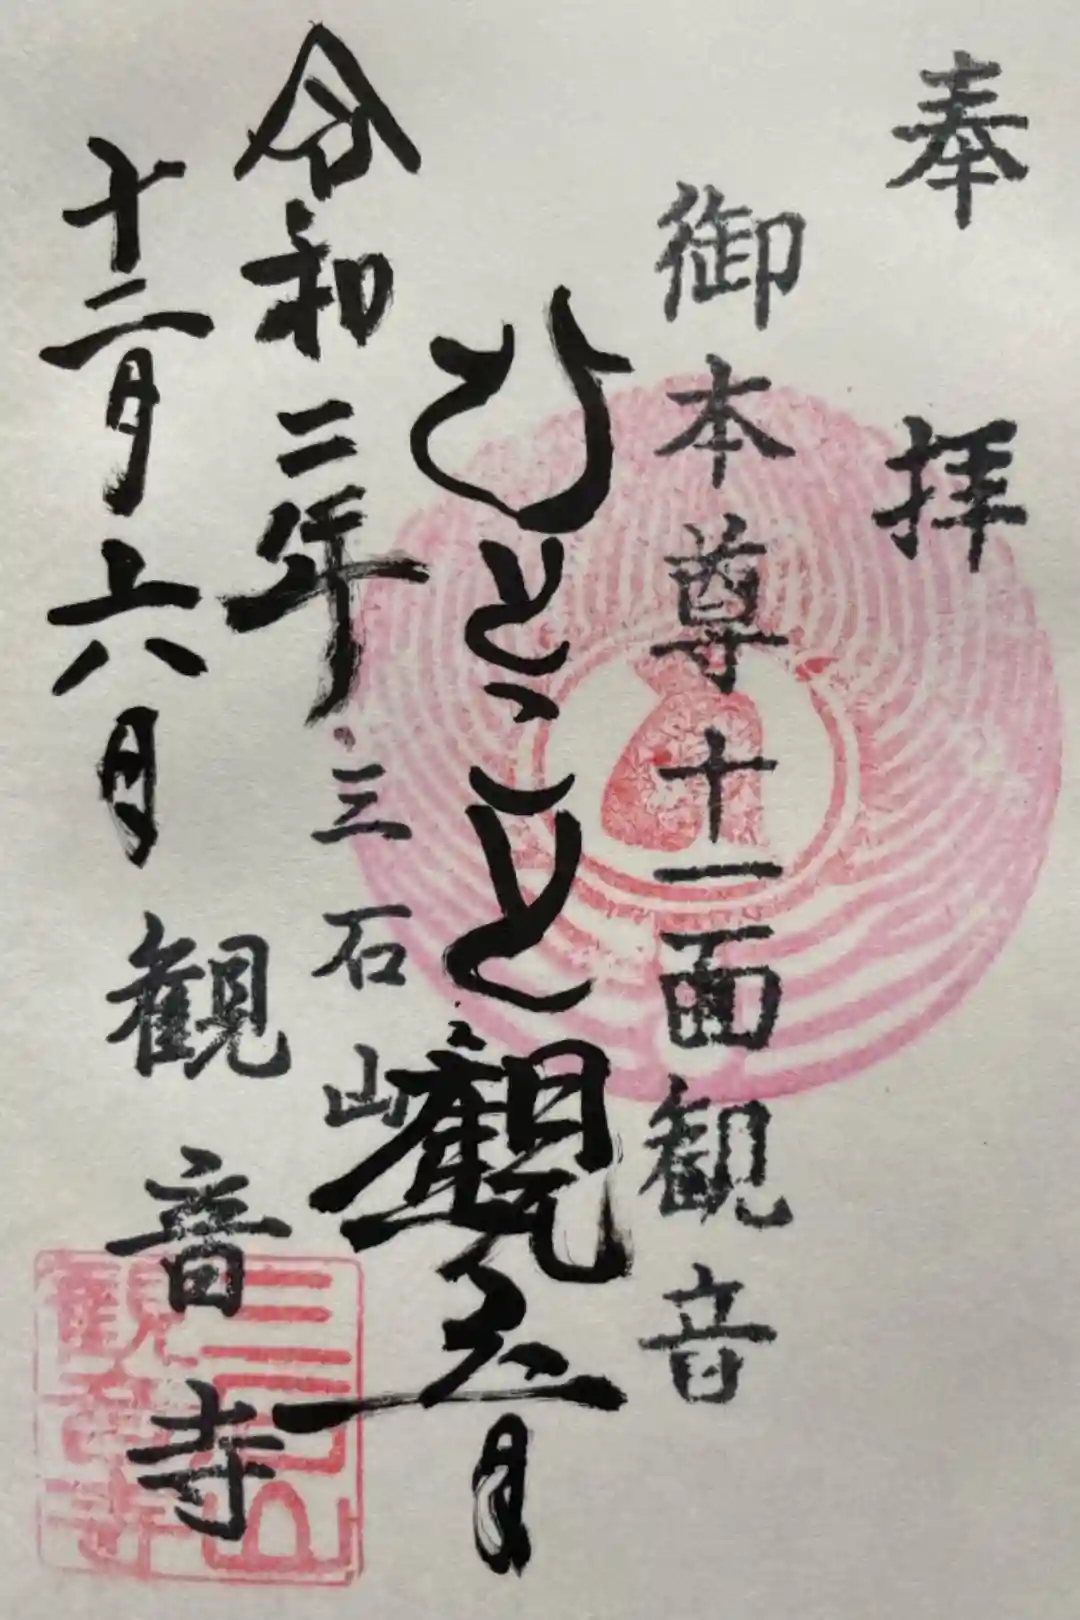 奉拝
御本尊十一面観音
ひとこと觀音
令和二年
三石山
十二月六日
観音寺
三石山
観音寺